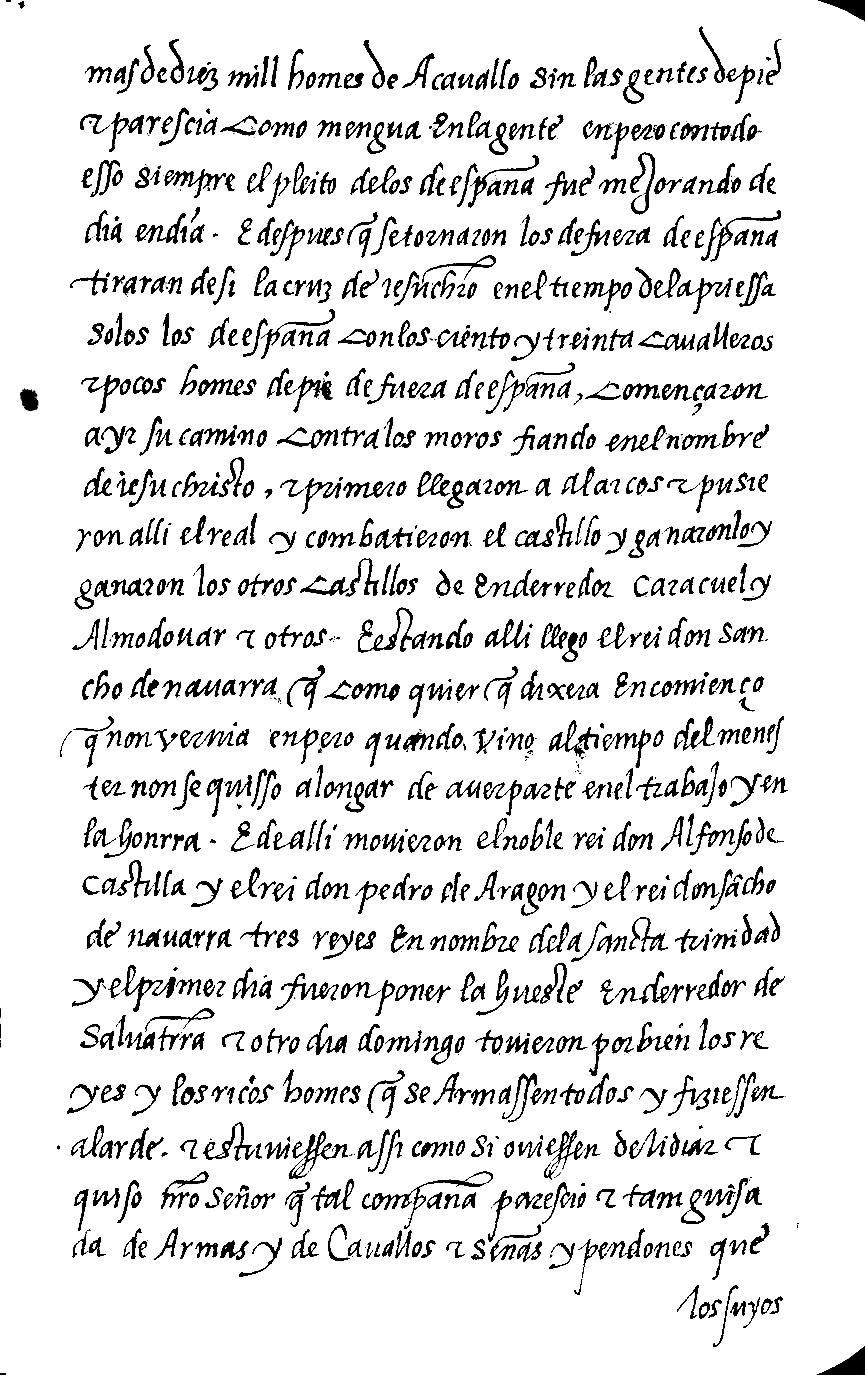 mas de diez mill homes de Acauallo sin las gentes de pie
τ parescia como mengua en la gente enpero con todo
esso siempre el pleito delos de españa fue mejorando de
dia en dia. E despues q̃ se tornaron los de fuera de españa
tiraran de si la cruz de iesuchr̃o en el tiempo dela priessa
solos los de españa con los ciento y treinta caualleros
τ pocos homes de pie de fuera de españa, començaron
a yr su camino contra los moros fiando en el nombre
de iesuchristo, τ primero llegaron a alarcos τ pusie
ron alli el real y combatieron el castillo y ganaronlo y
ganaron los otros castillos de enderredor Caracuel y
Almodouar τ otros. E estando alli llego el rei don San
cho de nauarra q̃ como quier q̃ dixera en comienço
q̃ non vernia enpero quando vino al tiempo del menes
ter non se quisso alongar de auer parte en el trabajo y en
la honrra. E de alli mouieron el noble rei don Alfonso de
Castilla y el rei don pedro de Aragon y el rei don sãcho
de nauarra tres reyes en nombre dela sancta trinidad
y el primer dia fueron poner la hueste enderredor de
Saluatr̃ra τ otro dia domingo touieron por bien los re
yes y los ricos homes q̃ se Armassen todos y fiziessen
alarde. τ estuuiessen assi como si ouiessen de lidiar τ
quiso nr̃o Señor q̃ tal compaña parescio τ tam guisa
da de Armas y de Cauallos τ señas y pendones que
los suyos